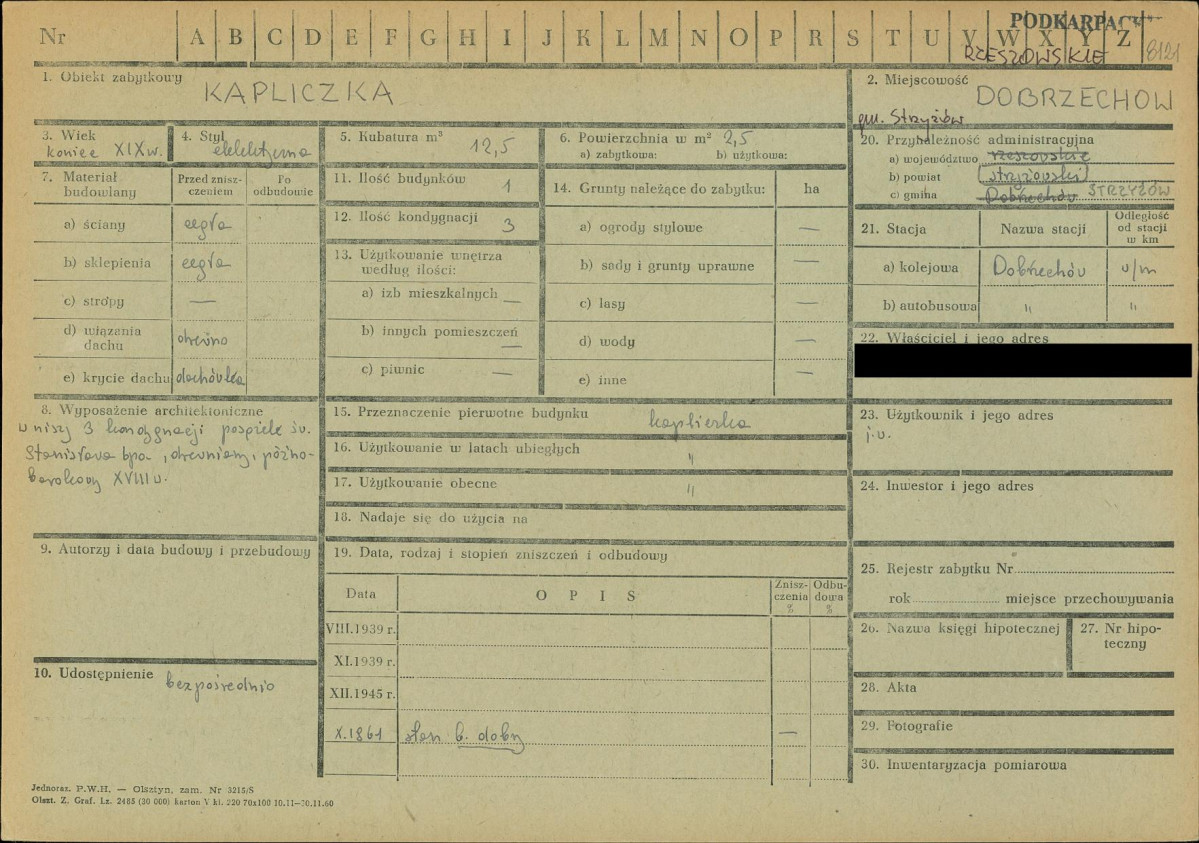 Nr A B C D E F G H I J K L M N O P R S T U V W X Y Z
PODKARPAC
RZESZOWSKIE 8121
1. Obiekt zabytkowy KAPLICZKA
2. Miejscowość DOBRZECHÓW
gm. Strzyżów
3. Wiek koniec XIX w.
4. Styl eklektyczna
5. Kubatura m³ 12,5
6. Powierzchnia w m² 2,5
a) zabytkowa: b) użytkowa:
20. Przynależność administracyjna
a) województwo rzeszowskie
b) powiat strzyżowski
c) gmina Dobrzechów STRZYŻÓW
7. Materiał budowlany
Przed zniszczeniem
Po odbudowie
a) ściany cegła
b) sklepienia cegła
c) stropy —
d) wiązania dachu drewno
e) krycie dachu dachówka
11. Ilość budynków 1
12. Ilość kondygnacji 3
13. Użytkowanie wnętrza
według ilości:
a) izb mieszkalnych —
b) innych pomieszczeń —
c) piwnic —
14. Grunty należące do zabytku: ha
a) ogrody stylowe —
b) sady i grunty uprawne —
c) lasy —
d) wody —
e) inne —
21. Stacja Nazwa stacji Odległość od stacji w km
a) kolejowa Dobrzechów w/m
b) autobusowa " "
22. Właściciel i jego adres
8. Wyposażenie architektoniczne
w niszy 3 kondygnacji posążek św.
Stanisława bpa, drewniany, późno-
barokowy XVIII w.
15. Przeznaczenie pierwotne budynku kapliczka
16. Użytkowanie w latach ubiegłych "
17. Użytkowanie obecne "
18. Nadaje się do użycia na
23. Użytkownik i jego adres
j.w.
24. Inwestor i jego adres
9. Autorzy i data budowy i przebudowy
19. Data, rodzaj i stopień zniszczeń i odbudowy
Data OPIS Zniszczenia % Odbudowa %
VIII.1939 r.
XI.1939 r.
XII.1945 r.
X.1961 stan b. dobry —
25. Rejestr zabytku Nr
rok miejsce przechowywania
26. Nazwa księgi hipotecznej
27. Nr hipoteczny
10. Udostępnienie bezpośrednio
28. Akta
29. Fotografie
30. Inwentaryzacja pomiarowa
Jednoraz. P.W.H. — Olsztyn, zam. Nr 3215/S
Olszt. Z. Graf. Lz. 2485 (30 000) karton V kl. 220 70x100 10.11—30.11.60